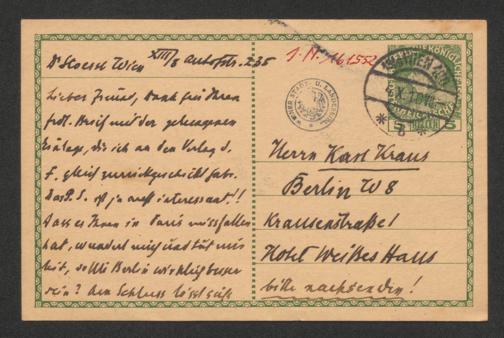 Dr Stoessl Wien XIII/8 Auhofstr. 235
J. N. 161.552
Lieber Freund, Dank für Ihren
frdl. Brief mit der gelungenen
Einlage, die ich an den Verlag d.
F. gleich zurückgeschickt habe.
Das P. S. ist ja auch interessant!!
Dass es Ihnen in Paris missfallen
hat, wundert mich und tut mir
leid, sollte Berlin wirklich besser
sein? Den Schluss lässt
WIENER STADT- U. LANDESBIBL.
Herrn Karl Kraus
Berlin W 8
Krausenstraße 1
Hotel Weißes Haus
bitte nachsenden!